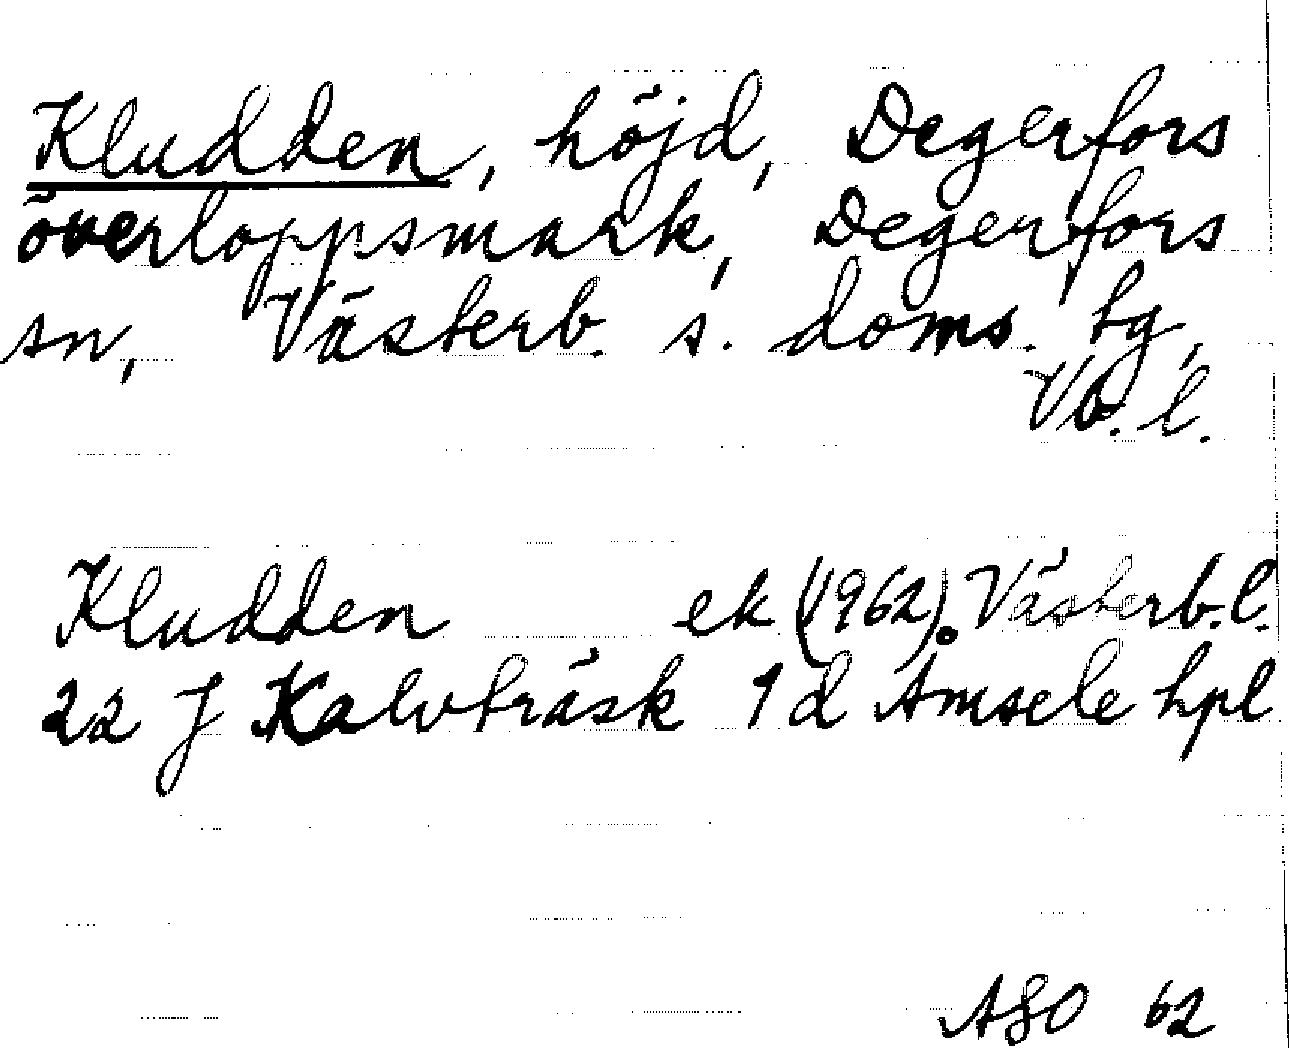 Kludden, höjd, Degerfors
överloppsmark, Degerfors
sn, Västerb. s. doms. tg,
Vb. l.
Kludden ek (1962). Västerb. l.
22 J Kalvträsk 1 d Åmsele hpl
ASO 62